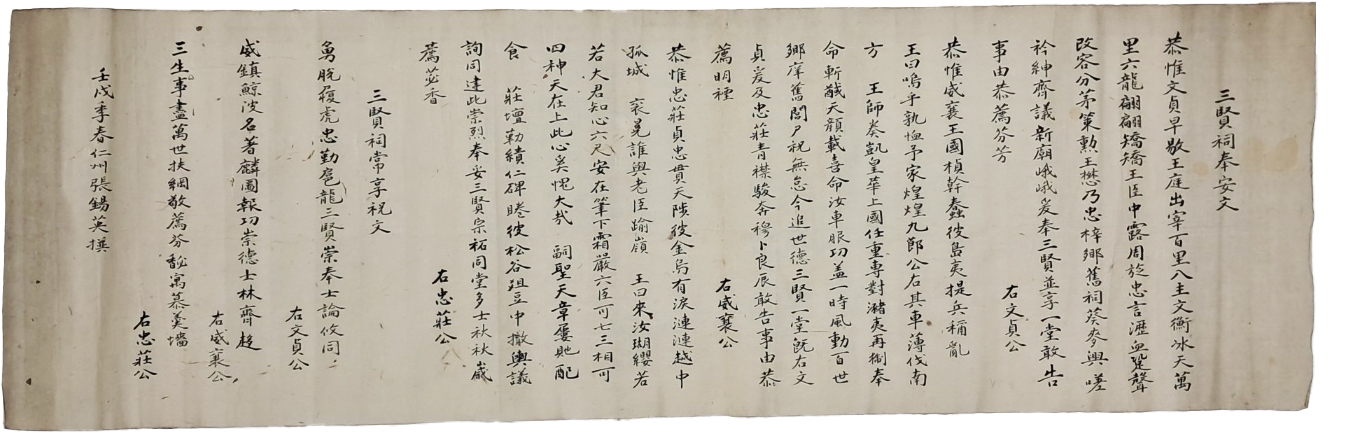 三賢祠奉安文
恭惟文貞早敭王庭出宰百里八主文衡冰天萬
里六龍翩翩矯矯王臣中露周旋忠言瀝血跫聲
改容分茅策勳王懋乃忠梓鄉舊祠葵麥興嗟
衿紳齊議新廟峨峨爰奉三賢並享一堂敢告
事由恭薦芬芳
右文貞公
恭惟威襄王國楨幹蠢彼島夷提兵稱亂
王曰嗚乎執恤予家煌煌九郞公右其車薄伐南
方 王師奏凱皇華上國任重專對瀦夷再捌奉
命斬馘天顔載喜命汝車服功盖一時風動百世
鄉庠舊閟尸祝無怠今追世德三賢一堂旣右文
貞爰及忠莊靑襟駿奔穆卜良辰敢告事由恭
薦明禋
右威襄公
恭惟忠莊貞忠貫天陟彼金烏有淚漣漣越中
孤城 袞冕誰與老臣踰嶺 王曰來汝瑚纓若
若大君知心六尺安在筆下霜嚴六臣可七三相可
四神天在上此心奚愧大哉 嗣聖天章屢貤配
食 莊壇勒績仁碑睠彼松谷俎豆中撤輿議
詢同達此崇烈奉安三賢宗祏同堂多士秋秋歲
薦苾香
右忠莊公
三賢祠常享祝文
勇脫履虎忠勤扈龍三賢崇奉士論攸同
右文貞公
威鎭鯨波名著麟圖報功崇德士林齊趍
右威襄公
三生事盡萬世扶綱敬薦芬馝寓慕羹墻
右忠莊公
壬戌季春仁州張錫英撰